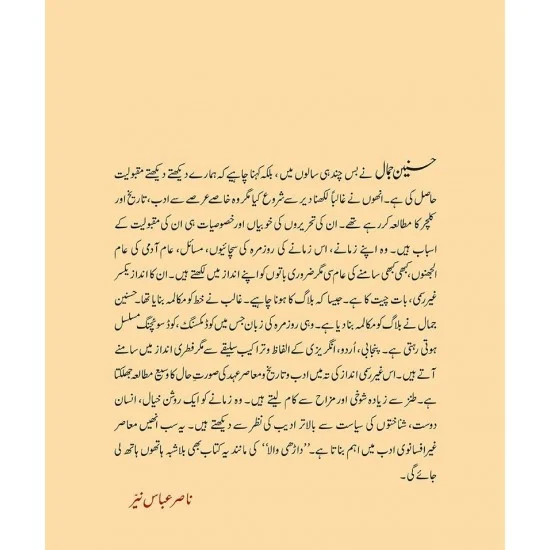 حسنین جمال نے بس چند ہی سالوں میں، بلکہ کہنا چاہیے کہ ہمارے دیکھتے دیکھتے مقبولیت
حاصل کی ہے۔ انھوں نے غالباً لکھنا دیر سے شروع کیا مگر وہ خاصے عرصے سے ادب، تاریخ اور
کلچر کا مطالعہ کر رہے تھے۔ ان کی تحریروں کی خوبیاں اور خصوصیات ہی ان کی مقبولیت کے
اسباب ہیں۔ وہ اپنے زمانے، اس زمانے کی روزمرہ کی سچائیوں، مسائل، عام آدمی کی عام
الجھنوں، کبھی کبھی سامنے کی عام سی مگر ضروری باتوں کو اپنے انداز میں لکھتے ہیں۔ ان کا انداز یکسر
غیر رسمی، بات چیت کا ہے۔ جیسا کہ بلاگ کا ہونا چاہیے۔ غالب نے خط کو مکالمہ بنایا تھا۔ حسنین
جمال نے بلاگ کو مکالمہ بنا دیا ہے۔ وہی روزمرہ کی زبان جس میں کوڈ مکسنگ، کوڈ سوئچنگ مسلسل
ہوتی رہتی ہے۔ پنجابی، اُردو، انگریزی کے الفاظ و تراکیب سلیقے سے مگر فطری انداز میں سامنے
آتے ہیں۔ اس غیر رسمی انداز کی تہ میں ادب و تاریخ و معاصر عہد کی صورتِ حال کا وسیع مطالعہ جھلکتا
ہے۔ طنز سے زیادہ شوخی اور مزاح سے کام لیتے ہیں۔ وہ زمانے کو ایک روشن خیال، انسان
دوست، شناختوں کی سیاست سے بالاتر ادیب کی نظر سے دیکھتے ہیں۔ یہ سب انھیں معاصر
غیر افسانوی ادب میں اہم بناتا ہے۔ ’’داڑھی والا‘‘ کی مانند یہ کتاب بھی بلاشبہ ہاتھوں ہاتھ لی
جائے گی۔
ناصر عباس نیّر